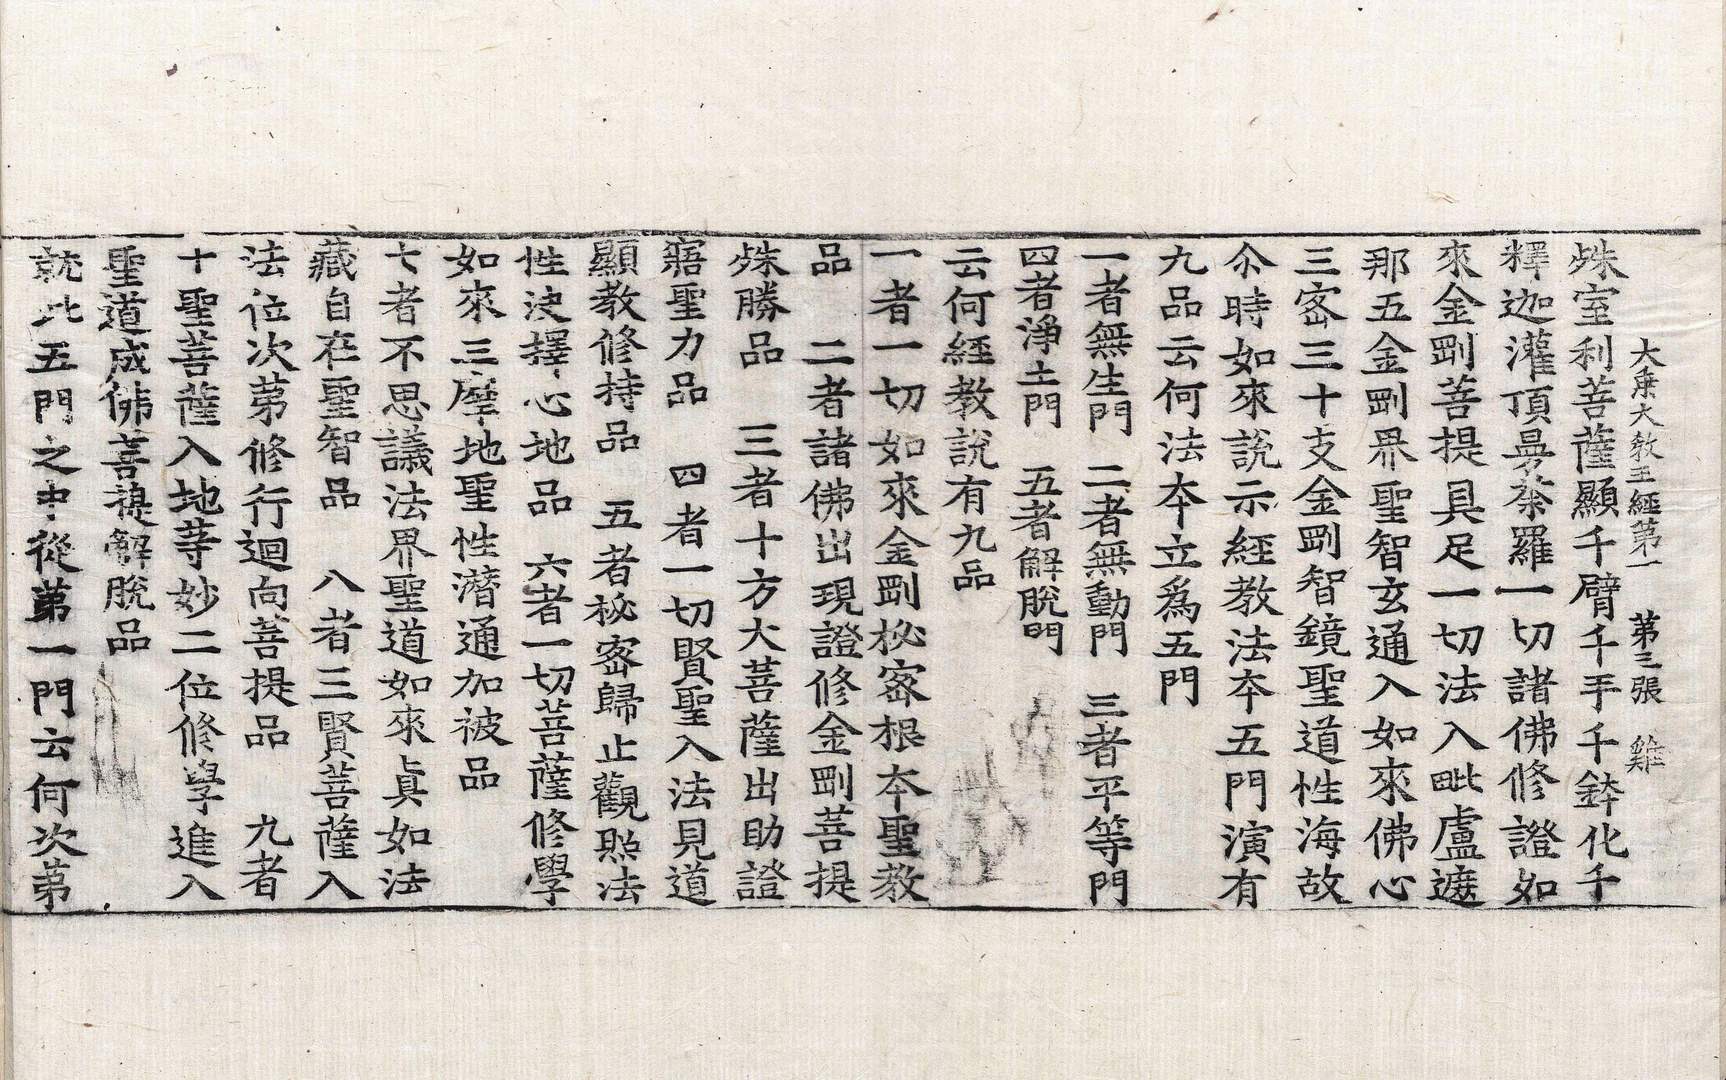 大乗大教王經第一 第三張 雞
殊室利菩薩顯千臂千手千鉢化千
釋迦灌頂曼荼羅一切諸佛修證如
來金剛菩提具足一切法入毗盧遮
那五金剛界聖智玄通入如來佛心
三密三十支金剛智鏡聖道性海故
尒時如來說示經教法夲五門演有
九品云何法夲立爲五門
一者無生門 二者無動門 三者平等門
四者淨土門 五者解脫門
云何經教說有九品
一者一切如來金剛秘密根夲聖教
品 二者諸佛出現證修金剛菩提
殊勝品 三者十方大菩薩出助證
寤聖力品 四者一切賢聖入法見道
顯教修持品 五者秘密歸止觀照法
性決擇心地品 六者一切菩薩修學
如來三摩地聖性潛通加被品
七者不思議法界聖道如來眞如法
藏自在聖智品 八者三賢菩薩入
法位次第修行迴向菩提品 九者
十聖菩薩入地等妙二位修學進入
聖道成佛菩提解脫品
就此五門之中從第一門云何次第